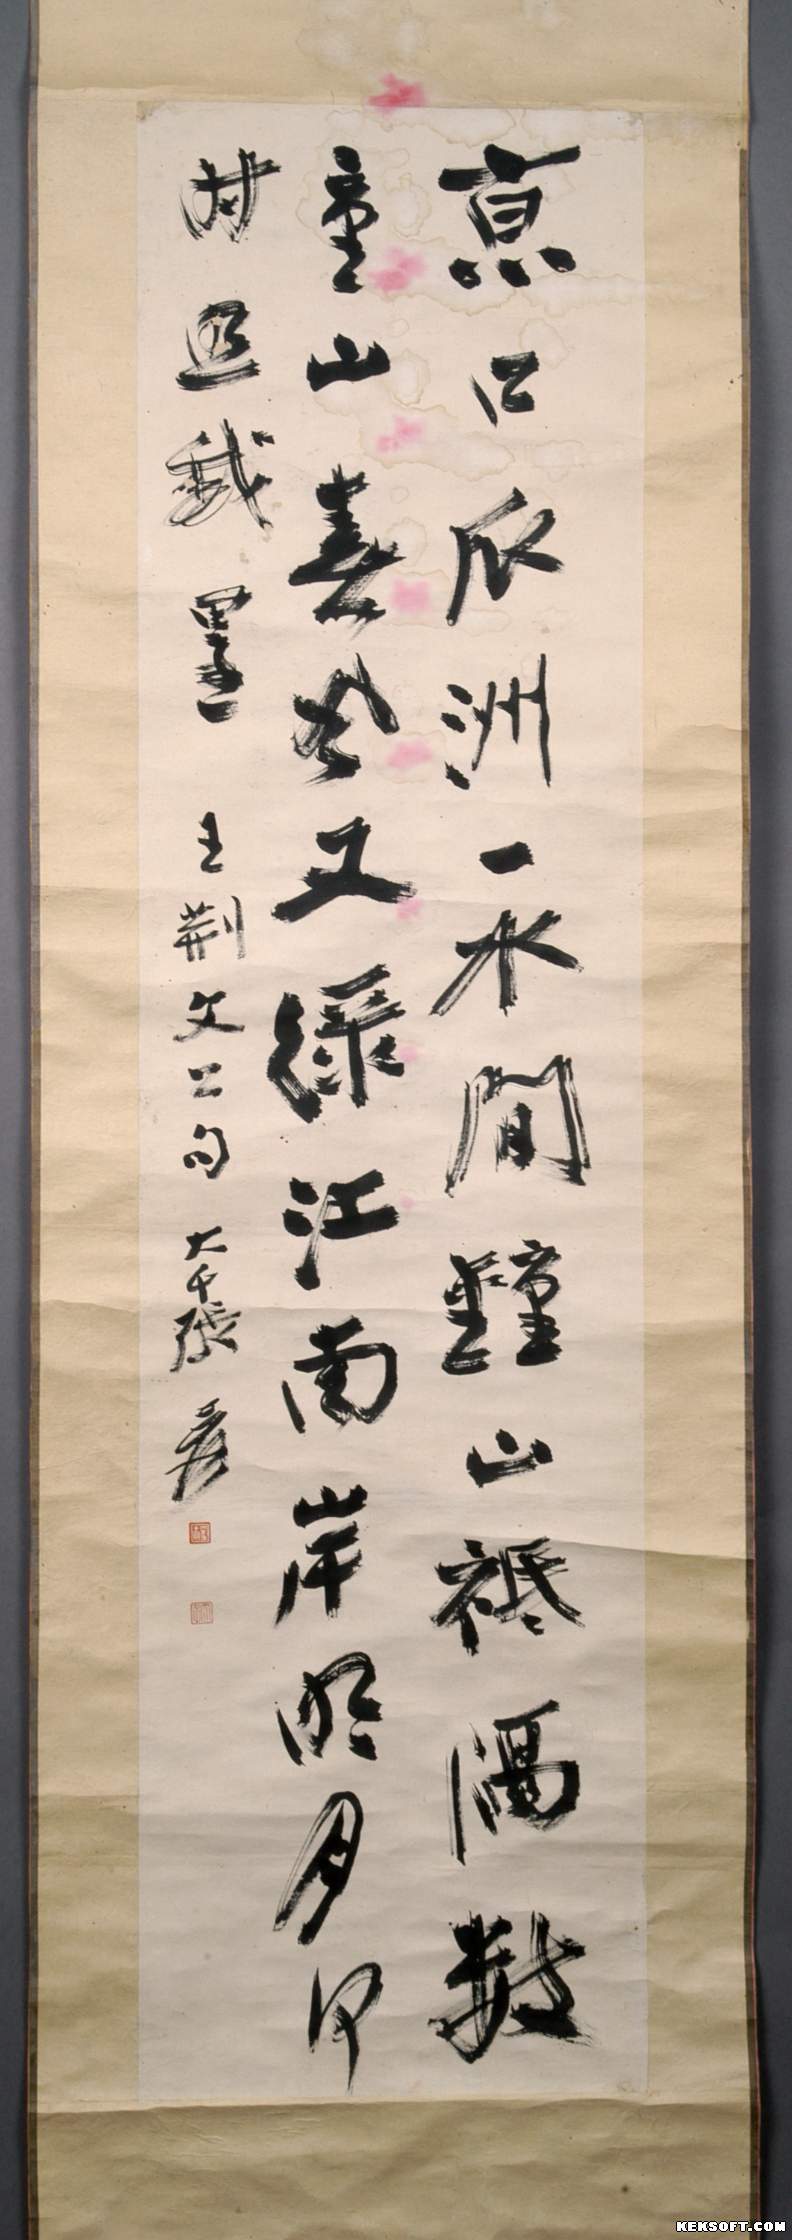 亰口瓜洲一水間鍾山祗隔數
重山春風又綠江南岸明月何
時照我還 王荊文公句 大千張爰
KEKSOFT.COM